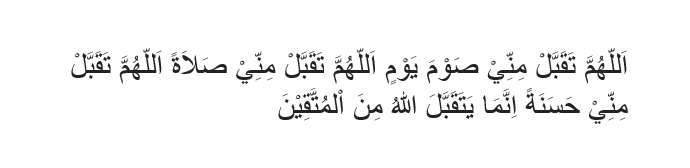 اَللّٰهُمَّ تَقَبَّلْ مِنِّيْ صَوْمَ يَوْمٍ اَللّٰهُمَّ تَقَبَّلْ مِنِّيْ صَلاَةً اَللّٰهُمَّ تَقَبَّلْ
مِنِّيْ حَسَنَةً اِنَّمَا يَتَقَبَّلَ اللهُ مِنَ اْلمُتَّقِيْنَ